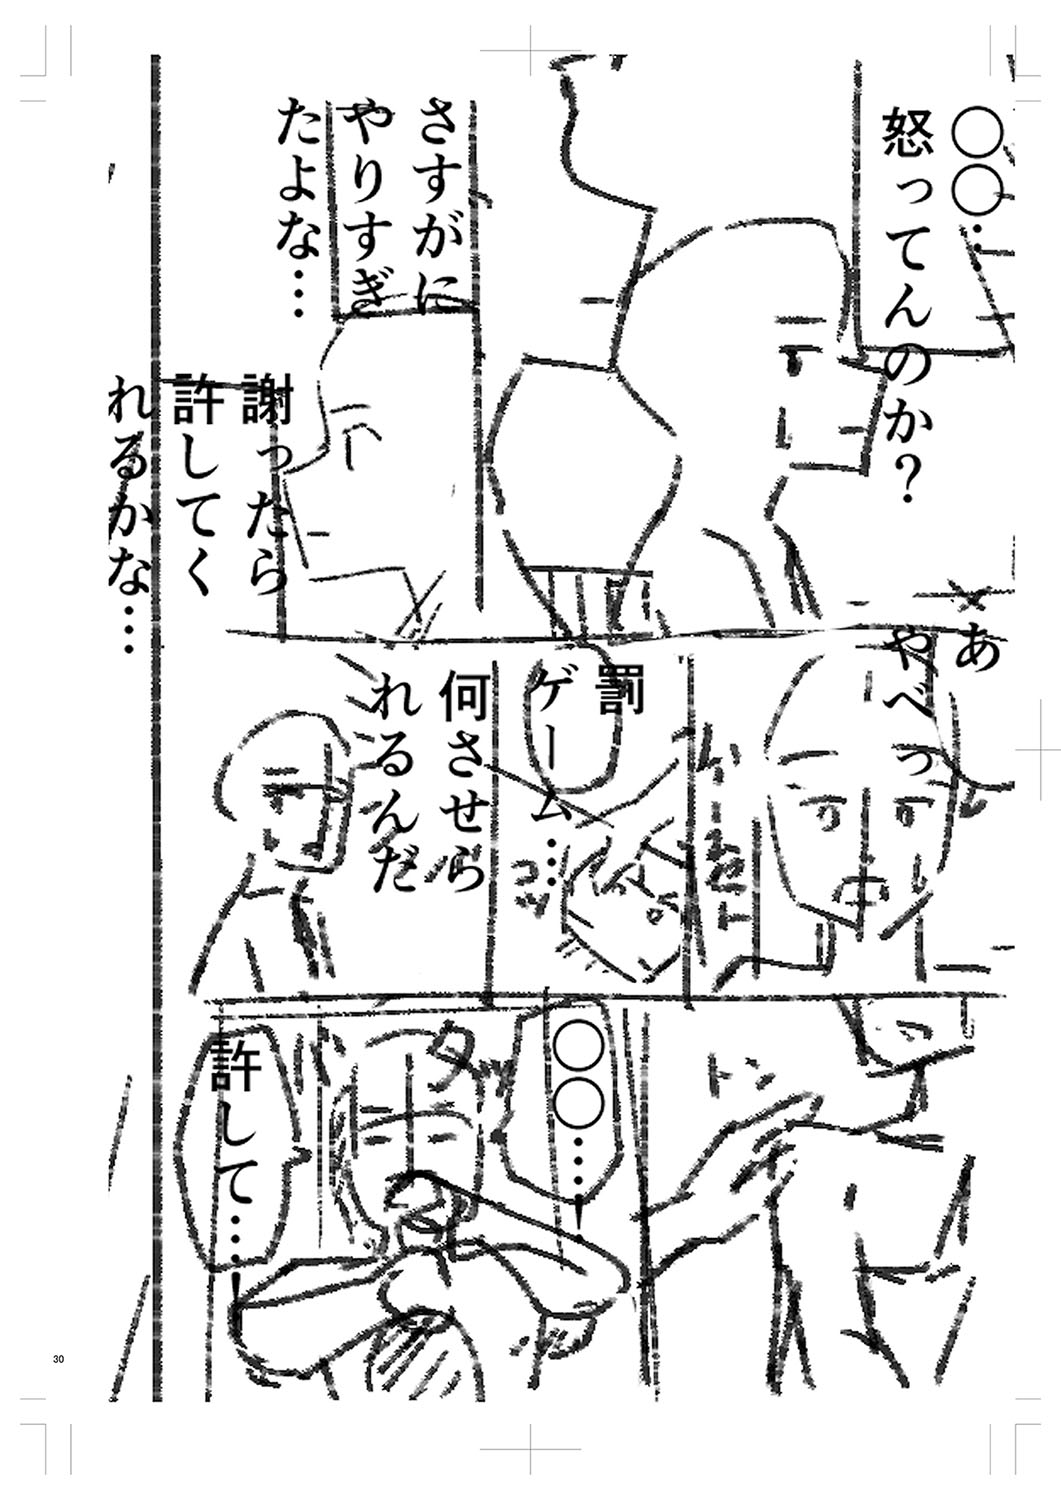 ○○…
怒ってんのか？
さすがに
やりすぎ
たよな…
謝ったら
許してく
れるかな…
あ
やべっ
罰
ゲーム…
何させら
れるんだ
コツ
トン
○○……！
タッ
許して……！
30